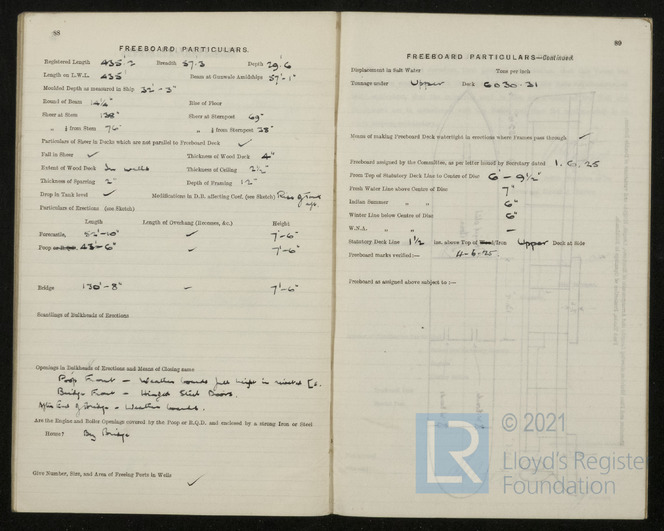 88
FREEBOARD PARTICULARS.
Registered Length 435'.2 Breadth 57.3 Depth 29.6
Length on L.W.L. 435' Beam at Gunwale Amidships 57'-1"
Moulded Depth as measured in Ship 32'-3"
Round of Beam 14¼" Rise of Floor
Sheer at Stem 128" Sheer at Sternpost 69"
" ⅛ from Stem 76" " ⅛ from Sternpost 38"
Particulars of Sheer in Docks which are not parallel to Freeboard Deck ✓
Fall in Sheer ✓ Thickness of Wood Deck 4"
Extent of Wood Deck In wells Thickness of Ceiling 2½"
Thickness of Sparring 2" Depth of Framing 12"
Drop in Tank level ✓ Modifications in D.B. affecting Coef. (see Sketch) Rise of Tank
Particulars of Erections (see Sketch)
Length Length of Overhang (Recesses, &c.) Height
Forecastle, 52'-10" ✓ 7'-6"
Poop 43'-6" ✓ 7'-6"
Bridge 130'-8" ✓ 7'-6"
Scantlings of Bulkheads of Erections
Openings in Bulkheads of Erections and Means of Closing same
Poop Front - Weather boards full height in riveted [s.
Bridge Front - Hinged Steel Doors.
After End of Bridge - Weather boards.
Are the Engine and Boiler Openings covered by the Poop or R.Q.D. and enclosed by a strong Iron or Steel
House? By Bridge
Give Number, Size, and Area of Freeing Ports in Wells
✓
89
FREEBOARD PARTICULARS—Continued.
Displacement in Salt Water Tons per inch
Tonnage under Upper Deck 6030.31
Means of making Freeboard Deck watertight in erections where Frames pass through ✓
Freeboard assigned by the Committee, as per letter issued by Secretary dated 1.6.25
From Top of Statutory Deck Line to Centre of Disc 6'-9½"
Fresh Water Line above Centre of Disc 7"
Indian Summer " " 6"
Winter Line below Centre of Disc 6"
W.N.A. " " —
Statutory Deck Line 1½ ins. above Top of Wood/Iron Upper Deck at Side
Freeboard marks verified:— 4-6-25.
Freeboard as assigned above subject to:—
LR
© 2021
Lloyd's Register
Foundation